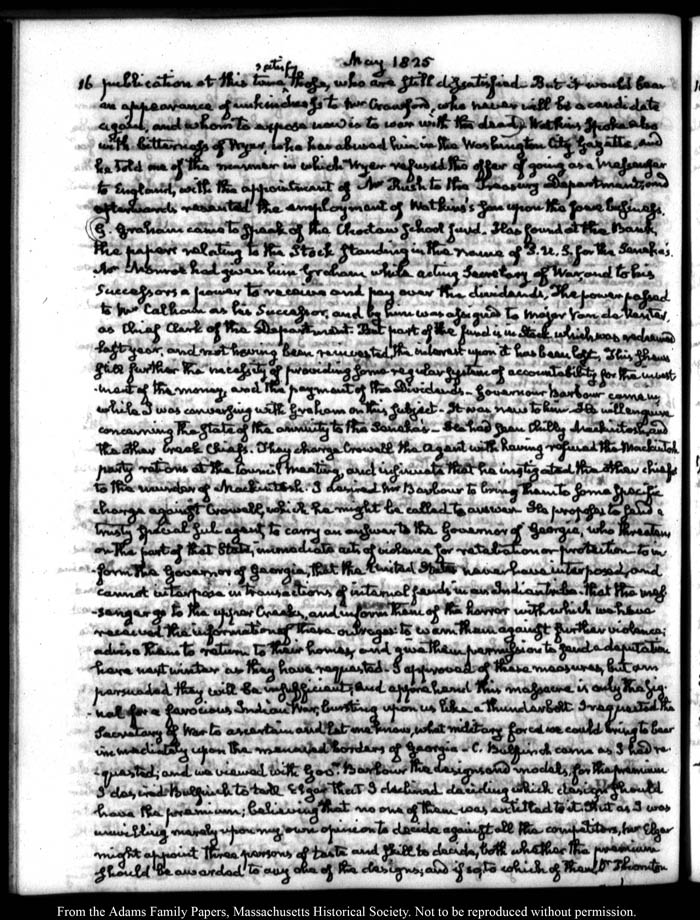 May 1825
satisfy
16 publication at this time those, who are still dissatisfied. But it would bear
an appearance of unkindness to Mr Crawford, who never will be a candidate
again, and whom to expose now is to war with the dead. Watkins spoke also
with bitterness of Wyer, who has abused him in the Washington City Gazette, and
he told me of the manner in which Wyer refused the offer of going as a Messenger
to England, with the appointment of Mr Rush to the Treasury Department, and
afterwards resented the employment of Watkins's Son upon the same business.
G. Graham came to speak of the Choctaw School fund. Has found at the Bank,
the papers relating to the Stock standing in the name of P. U. S. for the Seneka's.
Mr Monroe had given him Graham while acting Secretary of War, and to his
Successors a power to receive and pay over the dividends. The power passed
to Mr Calhoun as his Successor, and by him was assigned to Major Van de Venter,
as Chief Clerk of the Department. But part of the fund is in Stock which was redeemed
last year, and not having been reinvested, the interest upon it has been lost. This shews
still further the necessity of providing some regular system of accountability for the invest
-ment of the money, and the payment of the Dividends. Governour Barbour came in,
while I was conversing with Graham on this subject. It was new to him. He will enquire
concerning the State of the annuity to the Seneka's. He had seen Chilly Mackintosh, and
the other Creek Chiefs. They charge Crowell the Agent with having refused the Mackintosh
party rations at the Council meeting, and insinuate that he instigated the other chiefs
to the murder of Mackintosh. I desired Mr Barbour to bring them to some specific
charge against Crowell, which he might be called to answer. He proposes to send a
trusty special sub agent, to carry an answer to the Governor of Georgia, who threatens
on the part of that State, immediate acts of violence for retaliation or protection to in
-form the Governor of Georgia, that the United States never have interposed, and
cannot interpose in transactions of internal feuds in an Indian tribe. That the mes
-senger go to the upper Creeks, and inform them of the horror with which we have
received the information of these outrages: to warn them against further violence;
advise them to return to their homes, and give them permission to send a deputation
here next winter as they have requested. I approved of these measures, but am
persuaded they will be insufficient, and apprehend this massacre is only the sig
-nal for a ferocious Indian War, bursting upon us like a thunderbolt. I requested the
Secretary of War to ascertain and let me know, what military force we could bring to bear
immediately upon the menaced borders of Georgia. C. Bulfinch came as I had re
-quested; and we viewed with Gov. Barbour the designs and models, for the premium
I desired Bulfinch to tell Elgar that I declined deciding which design should
have the premium; believing that no one of them was entitled to it. But as I was
unwilling merely upon my own opinion to decide against all the competitors, Mr Elgar
might appoint three persons of taste and skill to decide, both whether the premium
should be awarded to any one of the designs; and if so, to which of them. Dr Thornton
From the Adams Family Papers, Massachusetts Historical Society. Not to be reproduced without permission.